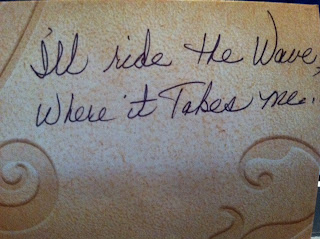 I'll ride the Wave,
Where it Takes me.